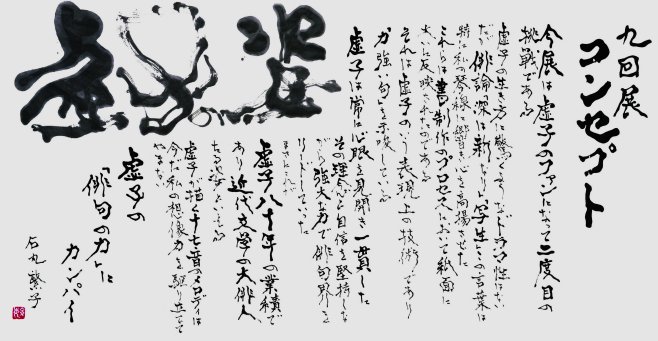 九回展
コンセプト
今展は虚子のファンになって二度目の
挑戦である
虚子の生き方に驚くようなドラマ性はない
だが俳論「深は新なり」「写生」この言葉は
特に私の琴線に響き心を高揚させた
これらは書制作のプロセスにおいて紙面に
大いに反映されたのである
それは虚子のいう表現上の技術であり
力強い句を示唆している
虚子は常に心眼を見開き一貫した
その理念と自信を堅持しな
がら強大な力で俳句界を
リードしていった
まさしくこれが
虚子八十年の業績で
あり近代文学の大俳人
たる所以といえる
虚子が描く十七音のメロディは
今だ私の想像力を駆り立てて
やまない
虚子の
「俳句の力」に
カンパイ
石丸繁子